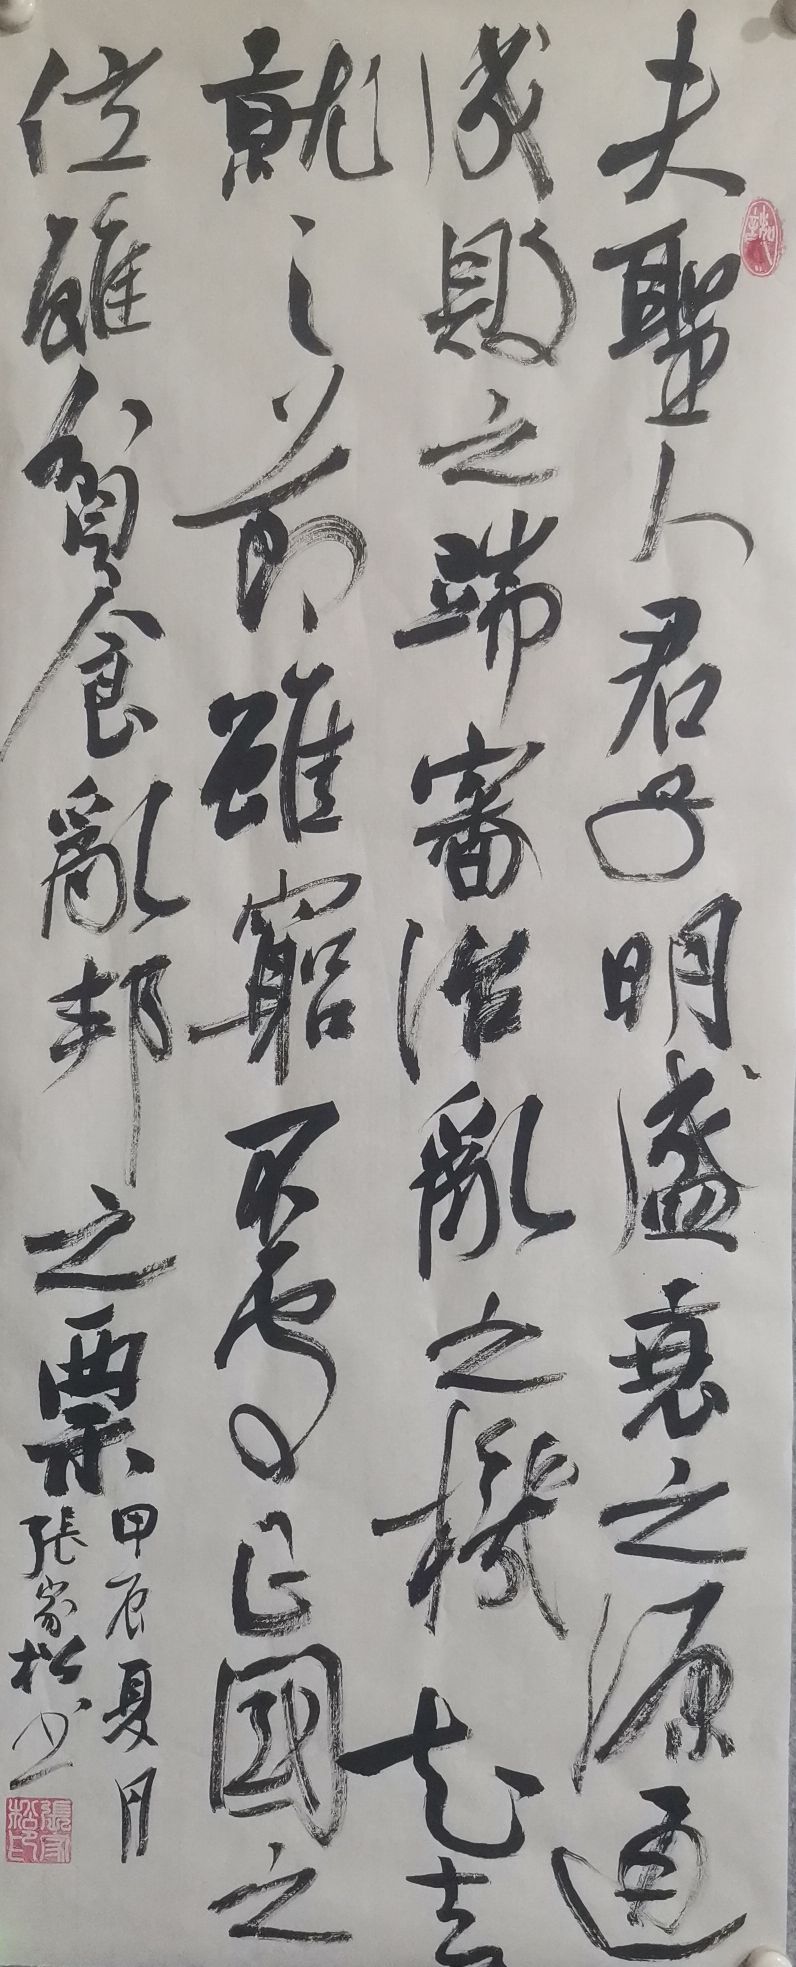 夫聖人君子明盛衰之源通
成敗之端審治亂之機知去
就之節雖窮不處亡國之
位雖貧不食亂邦之粟
甲辰夏月
張家松書
張家松印